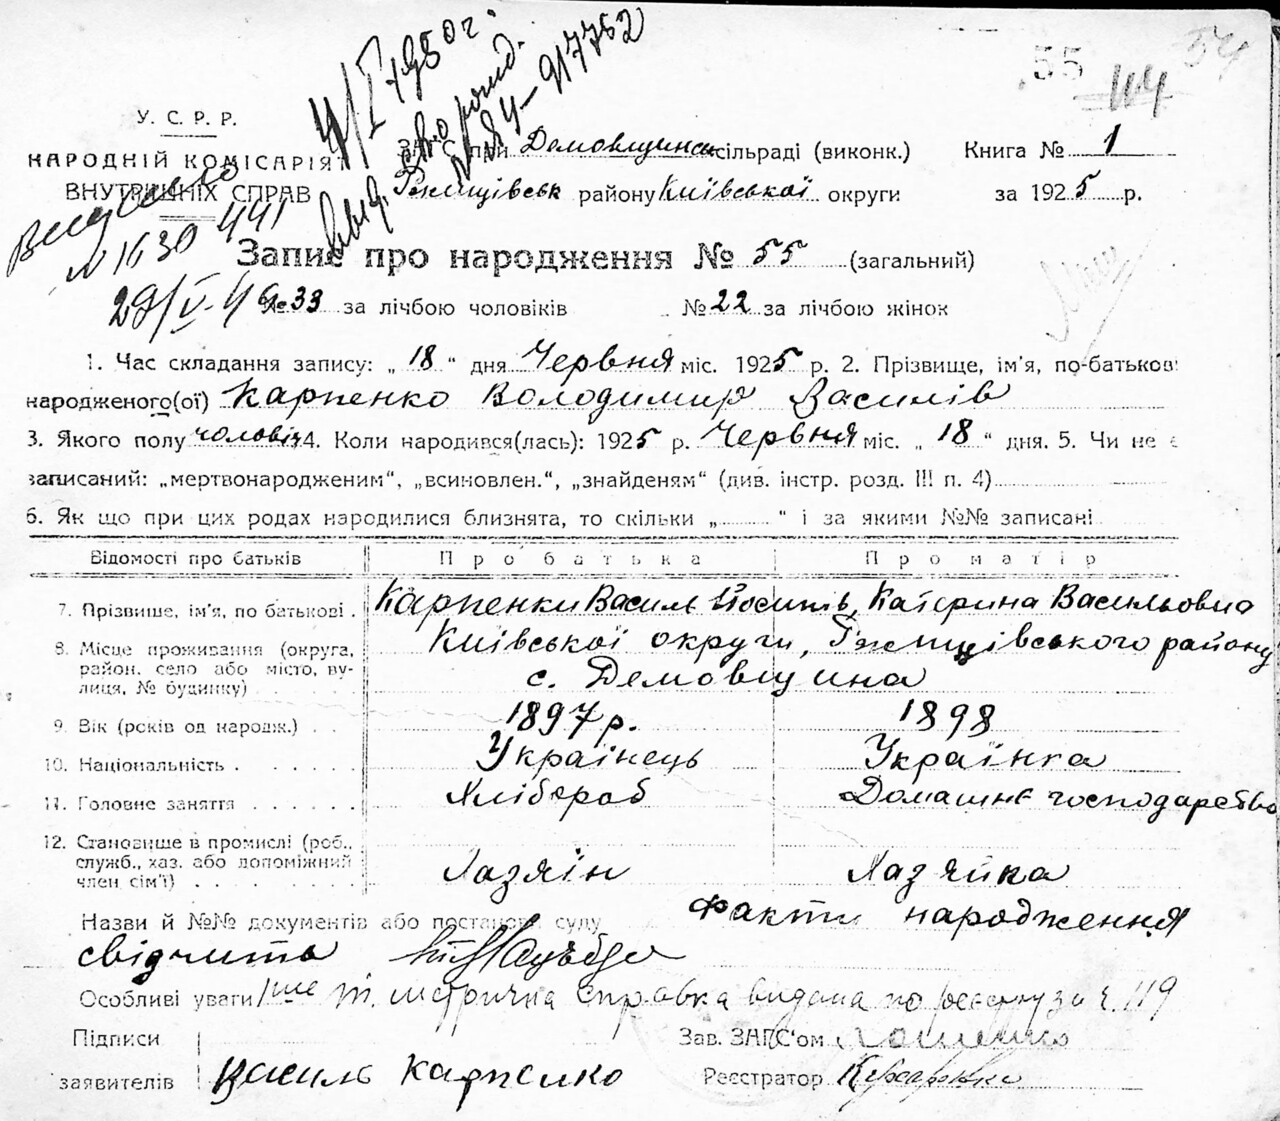 55 54
114
4/I 1950 г
№ 84-917752
У. С. Р. Р.
НАРОДНІЙ КОМІСАРІЯТ
ВНУТРІШНІХ СПРАВ
ЗАГС при Демовщинськ сільраді (виконк.) Книга № 1
Ржищівськ району Київської округи за 1925 р.
№ 1630 441
29/V-46
Запис про народження № 55 (загальний)
№ 33 за лічбою чоловіків № 22 за лічбою жінок
1. Час складання запису: „ 18 “ дня Червня міс. 1925 р. 2. Прізвище, ім’я, по-батькові
народженого(ої) Карпенко Володимир Василів
3. Якого полу чоловіч 4. Коли народився(лась): 1925 р. Червня міс. „ 18 “ дня. 5. Чи не є
записаний: „мертвонародженим“, „всиновлен.“, „знайденям“ (див. інстр. розд. III п. 4)
6. Як що при цих родах народилися близнята, то скільки „ “ і за якими №№ записані
Відомості про батьків Про батька Про матір
7. Прізвище, ім’я, по батькові . Карпенки Василь Йосипів, Катерина Васильовна
8. Місце проживання (округа, район, село або місто, вулиця, № будинку) Київської округи, Ржищівського району
с. Демовщина
9. Вік (років од народж.) . . 1897 р. 1898
10. Національність . . . . . Українець Українка
11. Головне заняття . . . . . . Хлібороб Домашнє господарство
12. Становище в промислі (роб., служб., хаз. або допоміжний член сім’ї) . . . . . . . Хазяїн Хазяйка
Назви й №№ документів або постанова суду Факти народження
свідчить
Особливі уваги метрична справка видана по реєстру за ч. 119
Підписи Зав. ЗАГС‘ом
заявителів Василь Карпенко Реєстратор